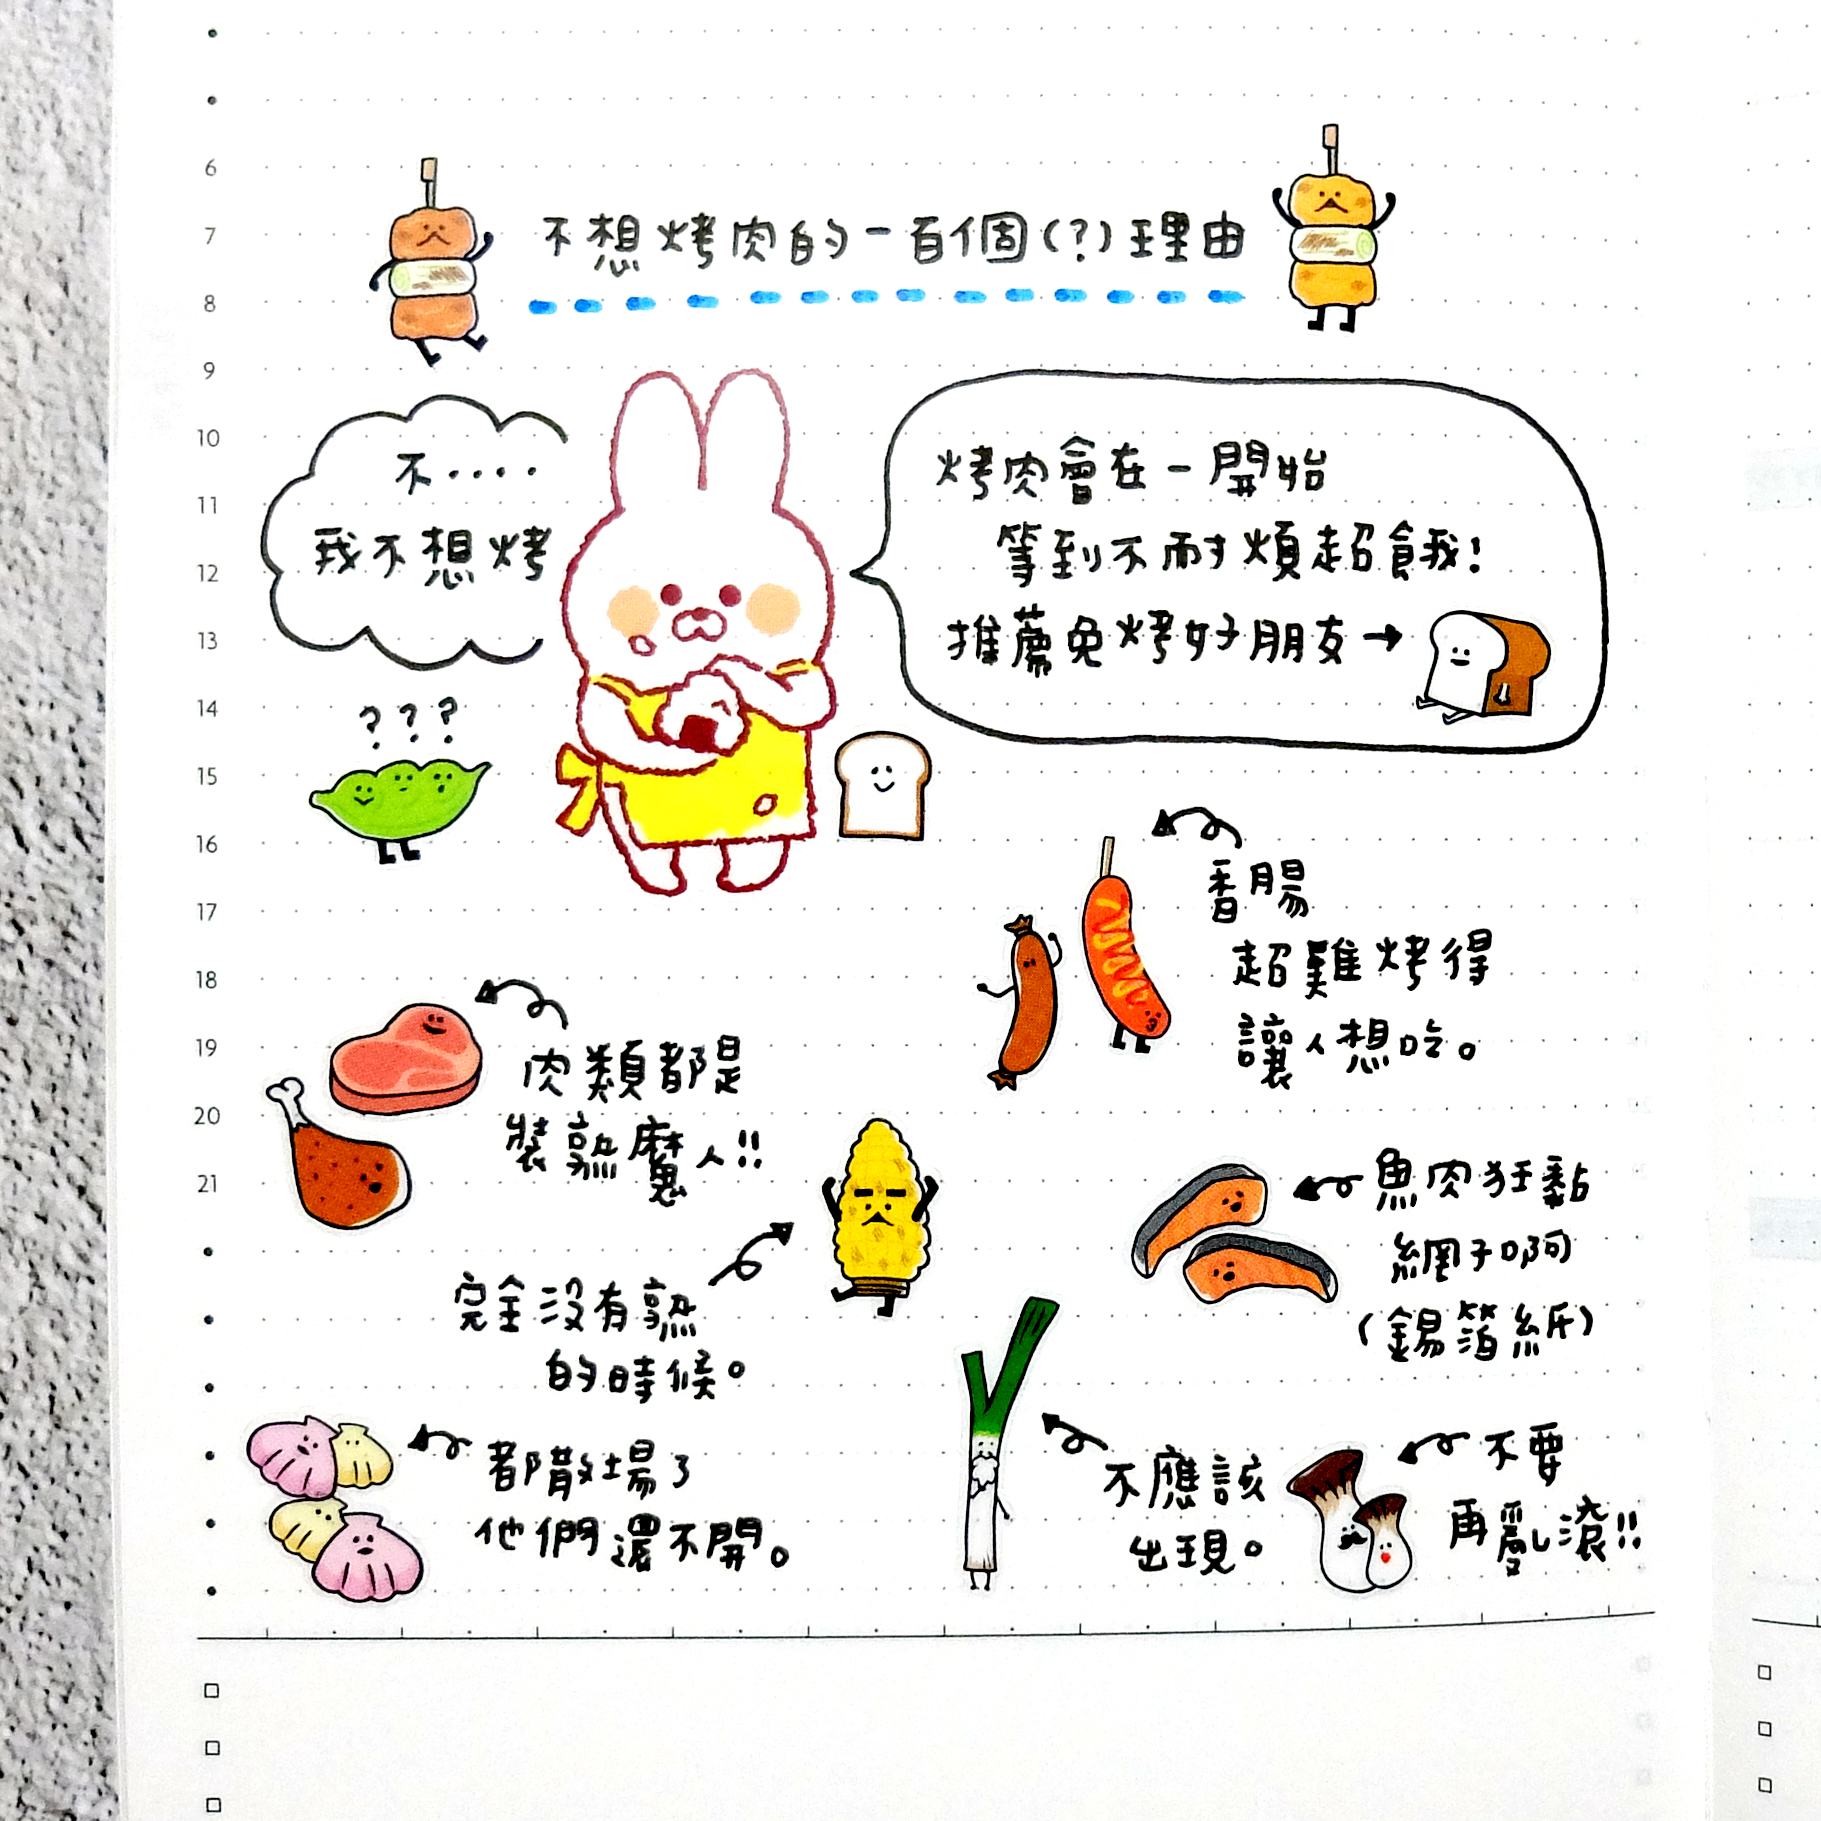 不想烤肉的一百個(?)理由
不....
我不想烤
烤肉會在一開始
等到不耐煩超餓!
推薦免烤好朋友→
???
香腸
超難烤得
讓人想吃。
肉類都是
裝熟魔人!!
魚肉狂黏
網子啊
(錫箔紙)
完全沒有熟
的時候。
都散場了
他們還不開。
不應該
出現。
不要
再亂滾!!
6
7
8
9
10
11
12
13
14
15
16
17
18
19
20
21